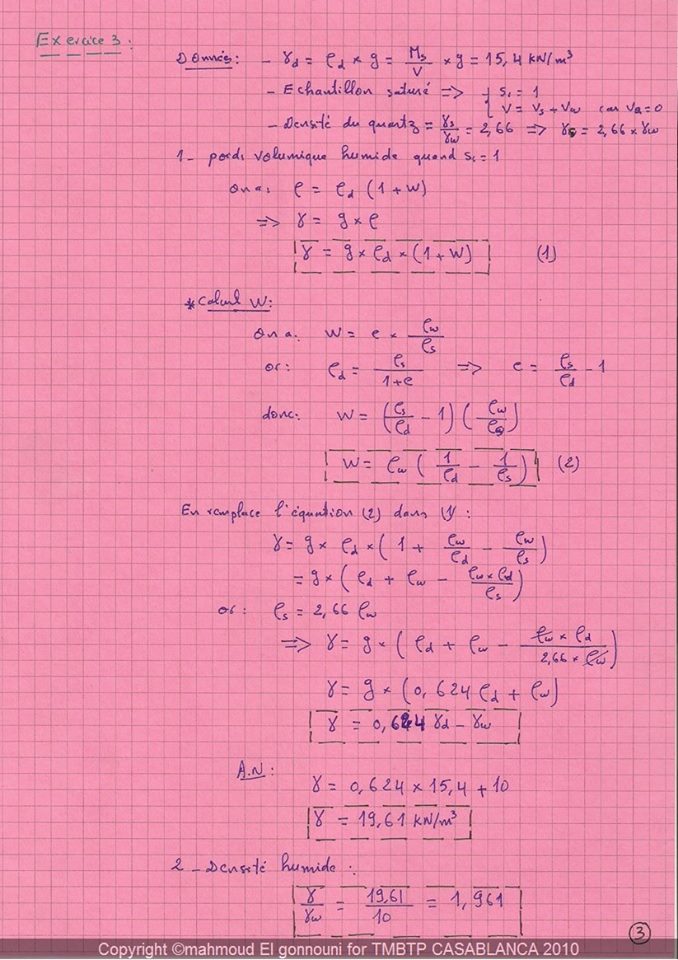 Exercice 3 :
Données : - γd = ρd × g = Ms/V × g = 15,4 kN/m³
- Echantillon saturé => { Si = 1
V = Vs + Vw car Va = 0
- Densité du quartz = γs/γw = 2,66 => γs = 2,66 × γw
1 - poids volumique humide quand Si = 1
on a : ρ = ρd (1 + W)
=> γ = g × ρ
γ = g × ρd × (1 + W) (1)
* Calcul W :
on a : W = e × ρw/ρs
or : ρd = ρs/(1+e) => e = ρs/ρd - 1
donc : W = (ρs/ρd - 1) (ρw/ρs)
W = ρw (1/ρd - 1/ρs) (2)
En remplace l'équation (2) dans (1) :
γ = g × ρd × (1 + ρw/ρd - ρw/ρs)
= g × (ρd + ρw - ρw × ρd/ρs)
or : ρs = 2,66 ρw
=> γ = g × (ρd + ρw - ρw × ρd/2,66 × ρw)
γ = g × (0,624 ρd + ρw)
γ = 0,624 γd - γw
A.N :
γ = 0,624 × 15,4 + 10
γ = 19,61 kN/m³
2 - Densité humide :
γ/γw = 19,61/10 = 1,961
3
Copyright ©mahmoud El gonnouni for TMBTP CASABLANCA 2010